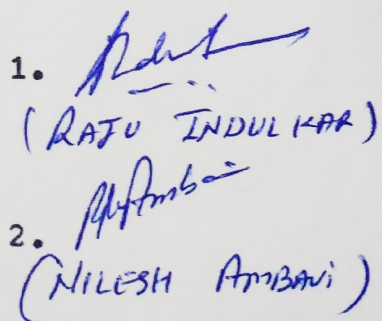 1.
(RAJU INDULKAR)
2.
(NILESH AMBANI)